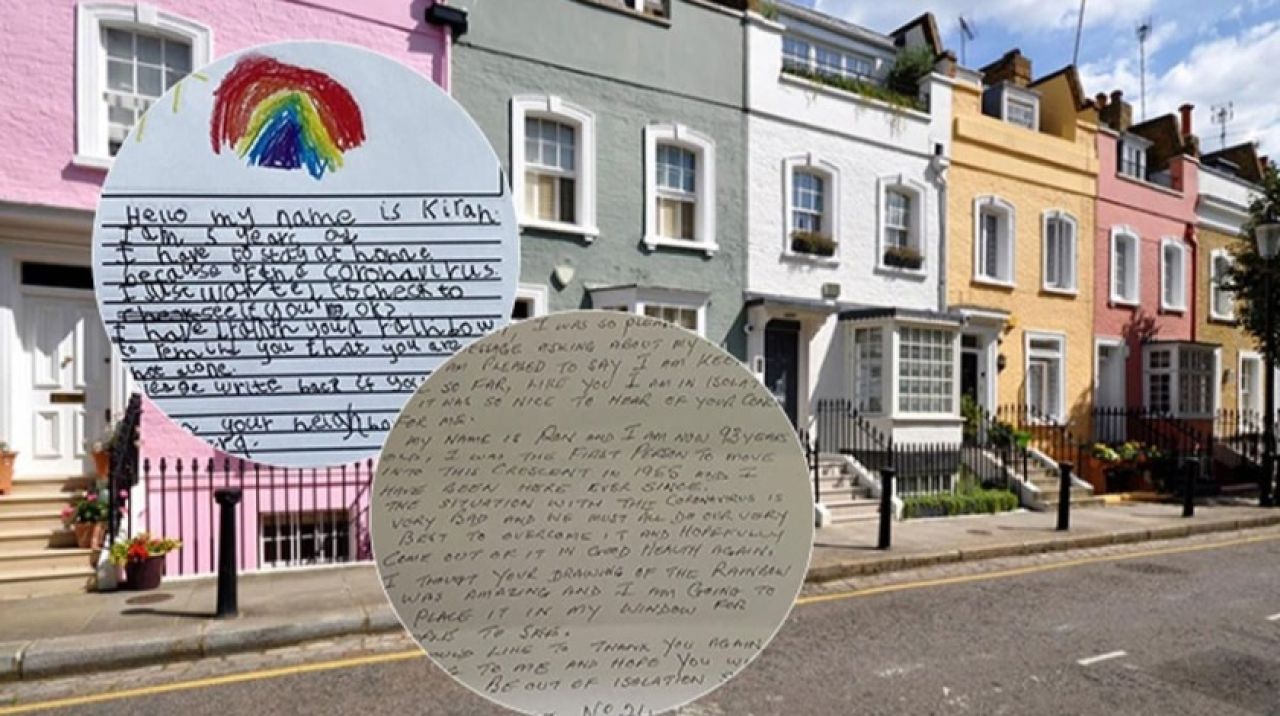 Hello my name is Kirah.
I am 5 years old
I have to stay at home
because of the coronavirus.
I just wanted to check to
see if you ok?
I have drawn you a rainbow
to remind you that you are
not alone.
Please write back if you
your neighbo
I WAS SO PLEA
ESSAGE ASKING ABOUT MY
AM PLEASED TO SAY I AM KEE
SO FAR, LIKE YOU I AM IN ISOLAT
IT WAS SO NICE TO HEAR OF YOUR CONC
FOR ME.
MY NAME IS RON AND I AM NOW 93 YEARS
OLD, I WAS THE FIRST PERSON TO MOVE
INTO THIS CRESCENT IN 1955 AND I
HAVE BEEN HERE EVER SINCE.
THE SITUATION WITH THIS CORONAVIRUS IS
VERY BAD AND WE MUST ALL DO OUR VERY
BEST TO OVERCOME IT AND HOPEFULLY
COME OUT OF IT IN GOOD HEALTH AGAIN.
I THOUGT YOUR DRAWING OF THE RAINBOW
WAS AMAZING AND I AM GOING TO
PLACE IT IN MY WINDOW FOR
TO SEE.
OULD LIKE TO THANK YOU AGAIN
TO ME AND HOPE YOU W
BE OUT OF ISOLATION S